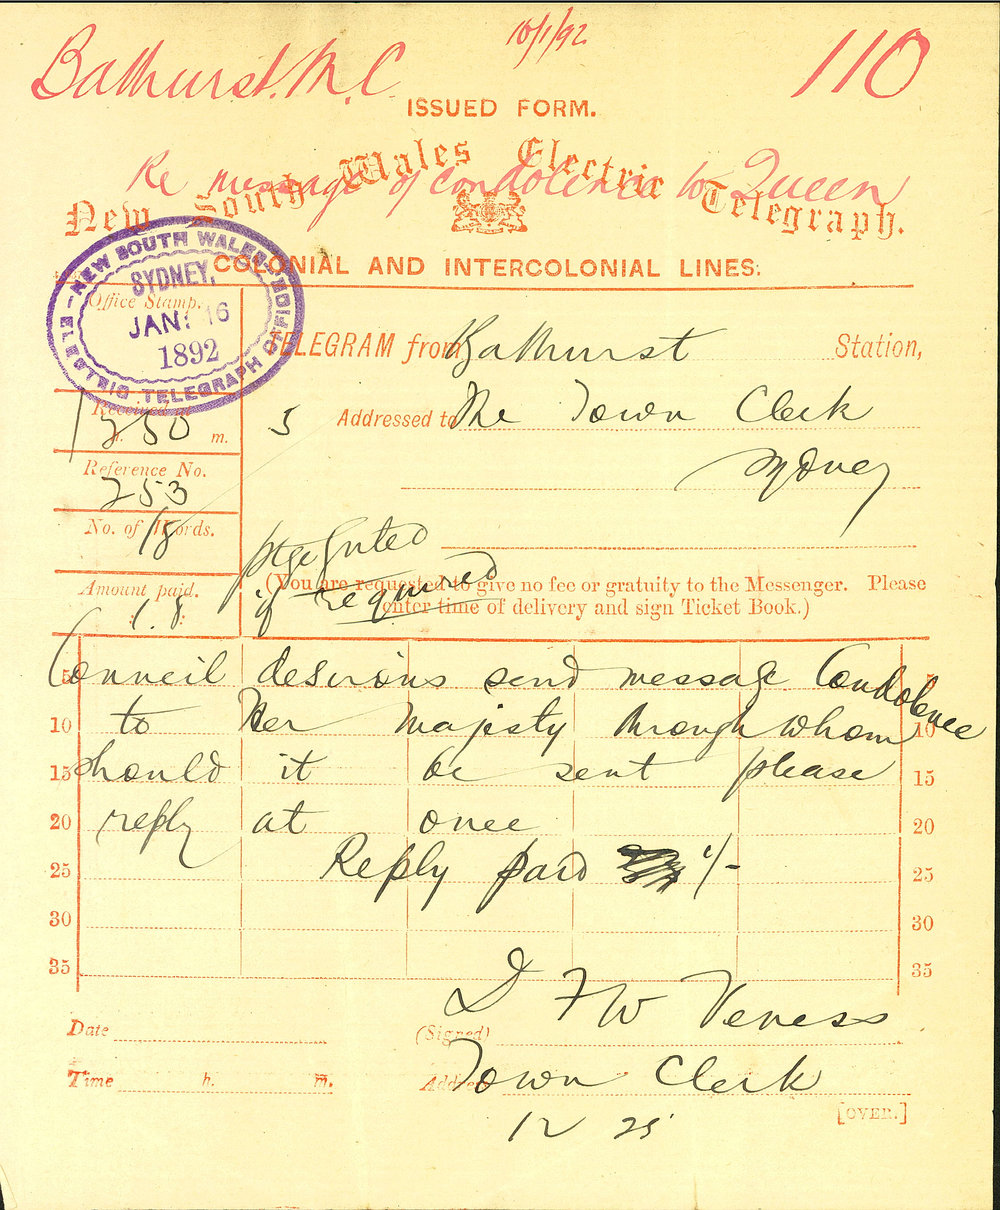 Bathurst. M.C.
16/1/92
110
ISSUED FORM.
Re message of condolence to Queen
New South Wales Electric Telegraph.
COLONIAL AND INTERCOLONIAL LINES.
NEW SOUTH WALES
ELECTRIC TELEGRAPH OFFICE
SYDNEY.
JAN: 16
1892
Office Stamp.
TELEGRAM from Bathurst Station,
Received at
2 50 m.
5 Addressed to The Town Clerk
Sydney
Reference No.
253
No. of Words.
18
Amount paid.
1.8
if required
(You are requested to give no fee or gratuity to the Messenger. Please
enter time of delivery and sign Ticket Book.)
5 Council desirous send message Condolence 5
10 to Her Majesty through whom 10
15 should it be sent please 15
20 reply at once 20
25 Reply paid 1/- 25
30 30
35 35
D F W Veness
Date (Signed)
Time h. m. Address Town Clerk
12 25
[OVER.]